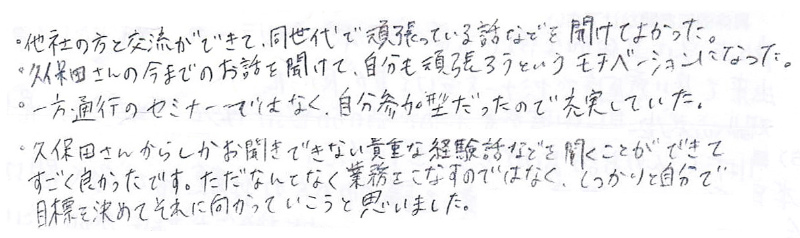 ・他社の方と交流ができて、同世代で頑張っている話などを聞けてよかった。
・久保田さんの今までのお話を聞けて、自分も頑張ろうというモチベーションになった。
・一方通行のセミナーではなく、自分参加型だったので充実していた。
・久保田さんからしかお聞きできない貴重な経験話などを聞くことができて
すごく良かったです。ただなんとなく業務をこなすのではなく、しっかりと自分で
目標を決めてそれに向かっていこうと思いました。